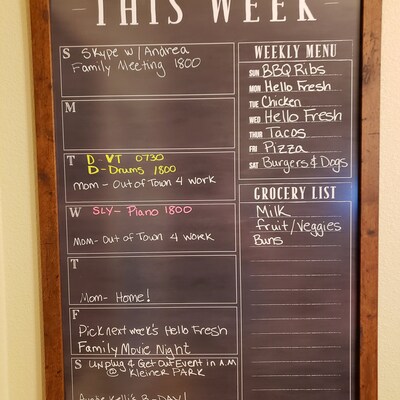 THIS WEEK
S Skype w/ Andrea
Family Meeting 1800
M
T D - VT 0730
D - Drums 1800
Mom - Out of Town 4 work
W SLY - Piano 1800
Mom - Out of Town 4 work
T
Mom - Home!
F
Pick next week's Hello Fresh
Family Movie Night
S Unplug & Get Out Event in A.M
@ Kleiner Park
Auntie Kelli's B-DAY!
WEEKLY MENU
SUN BBQ Ribs
MON Hello Fresh
TUE Chicken
WED Hello Fresh
THUR Tacos
FRI Pizza
SAT Burgers & Dogs
GROCERY LIST
Milk
fruit/Veggies
Buns